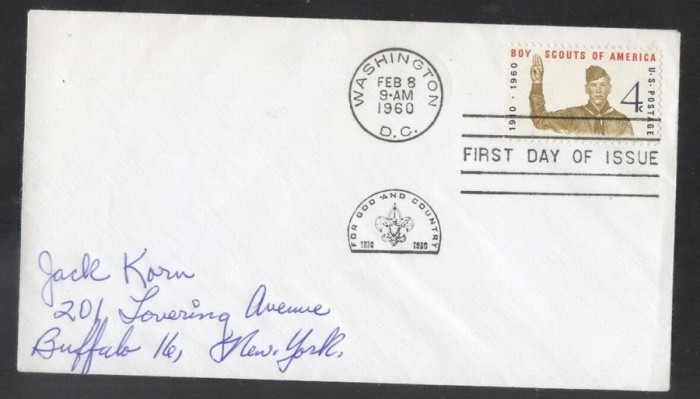 WASHINGTON
FEB 8
9-AM
1960
D.C.
BOY SCOUTS OF AMERICA
1910 · 1960
4c
U.S. POSTAGE
FIRST DAY OF ISSUE
FOR GOD AND COUNTRY
1910 1960
Jack Korn
201 Lovering Avenue
Buffalo 16, New York.